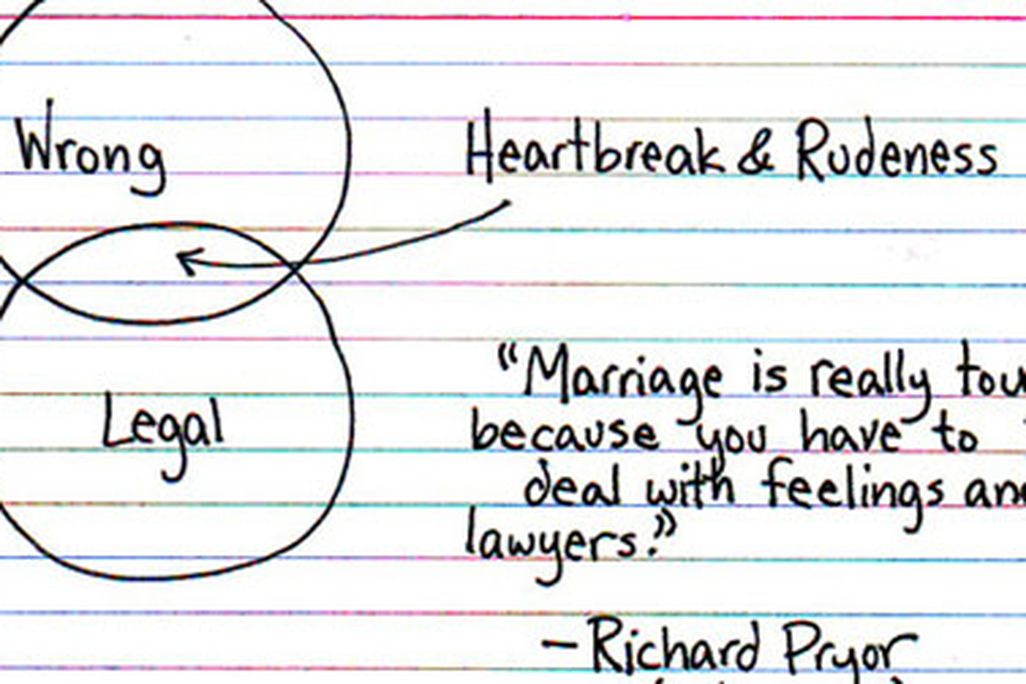 Wrong
Heartbreak & Rudeness
Legal
"Marriage is really
because you have to
deal with feelings
lawyers."
-Richard Pryor